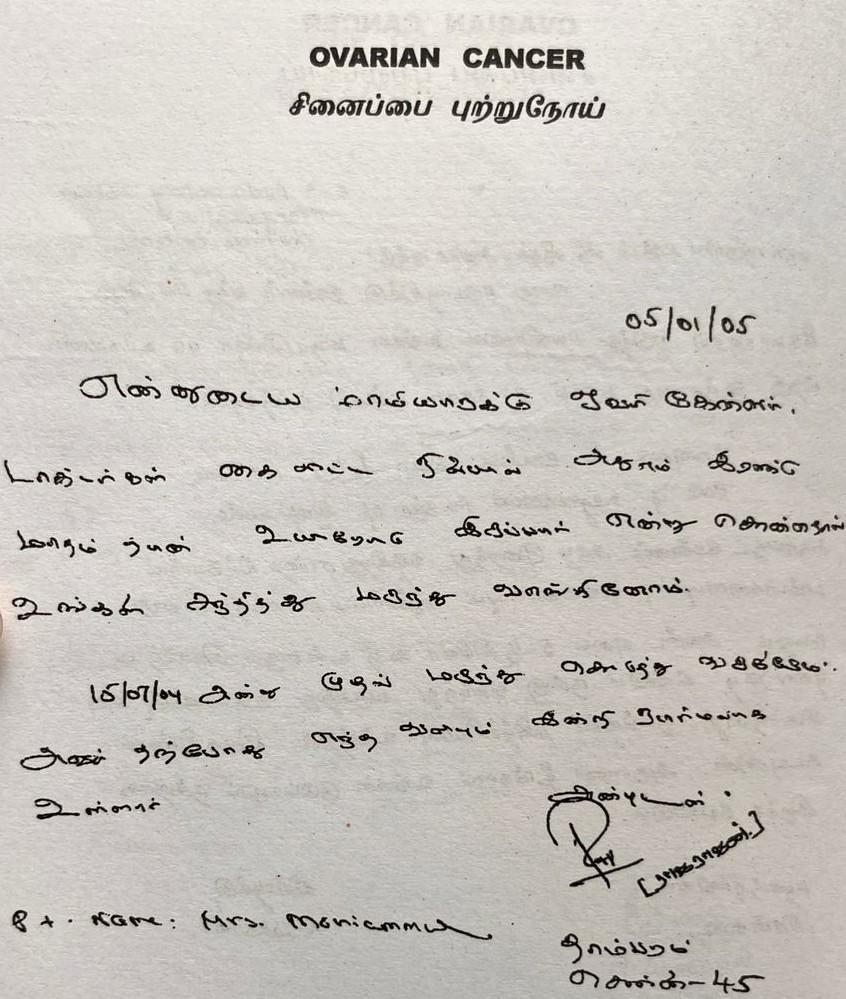 OVARIAN CANCER
சினைப்பை புற்றுநோய்
05/01/05
என்னுடைய மாமியாருக்கு ஓவரி கேன்சர்.
டாக்டர்கள் கை விட்ட நிலையில் அதாவது இரண்டு
மாதம் தான் உயிரோடு இருப்பார் என்று சொன்னதால்
உங்களை சந்தித்து மருந்து வாங்கினோம்.
15/07/04 அன்று முதல் மருந்து கொடுத்து வருகிறோம்.
அவர் தற்போது எந்த வலியும் இன்றி நார்மலாக
உள்ளார்
அன்புடன்
[நாகராஜன்]
Pt. Name: Mrs. Manicammal
தாம்பரம்
சென்னை-45